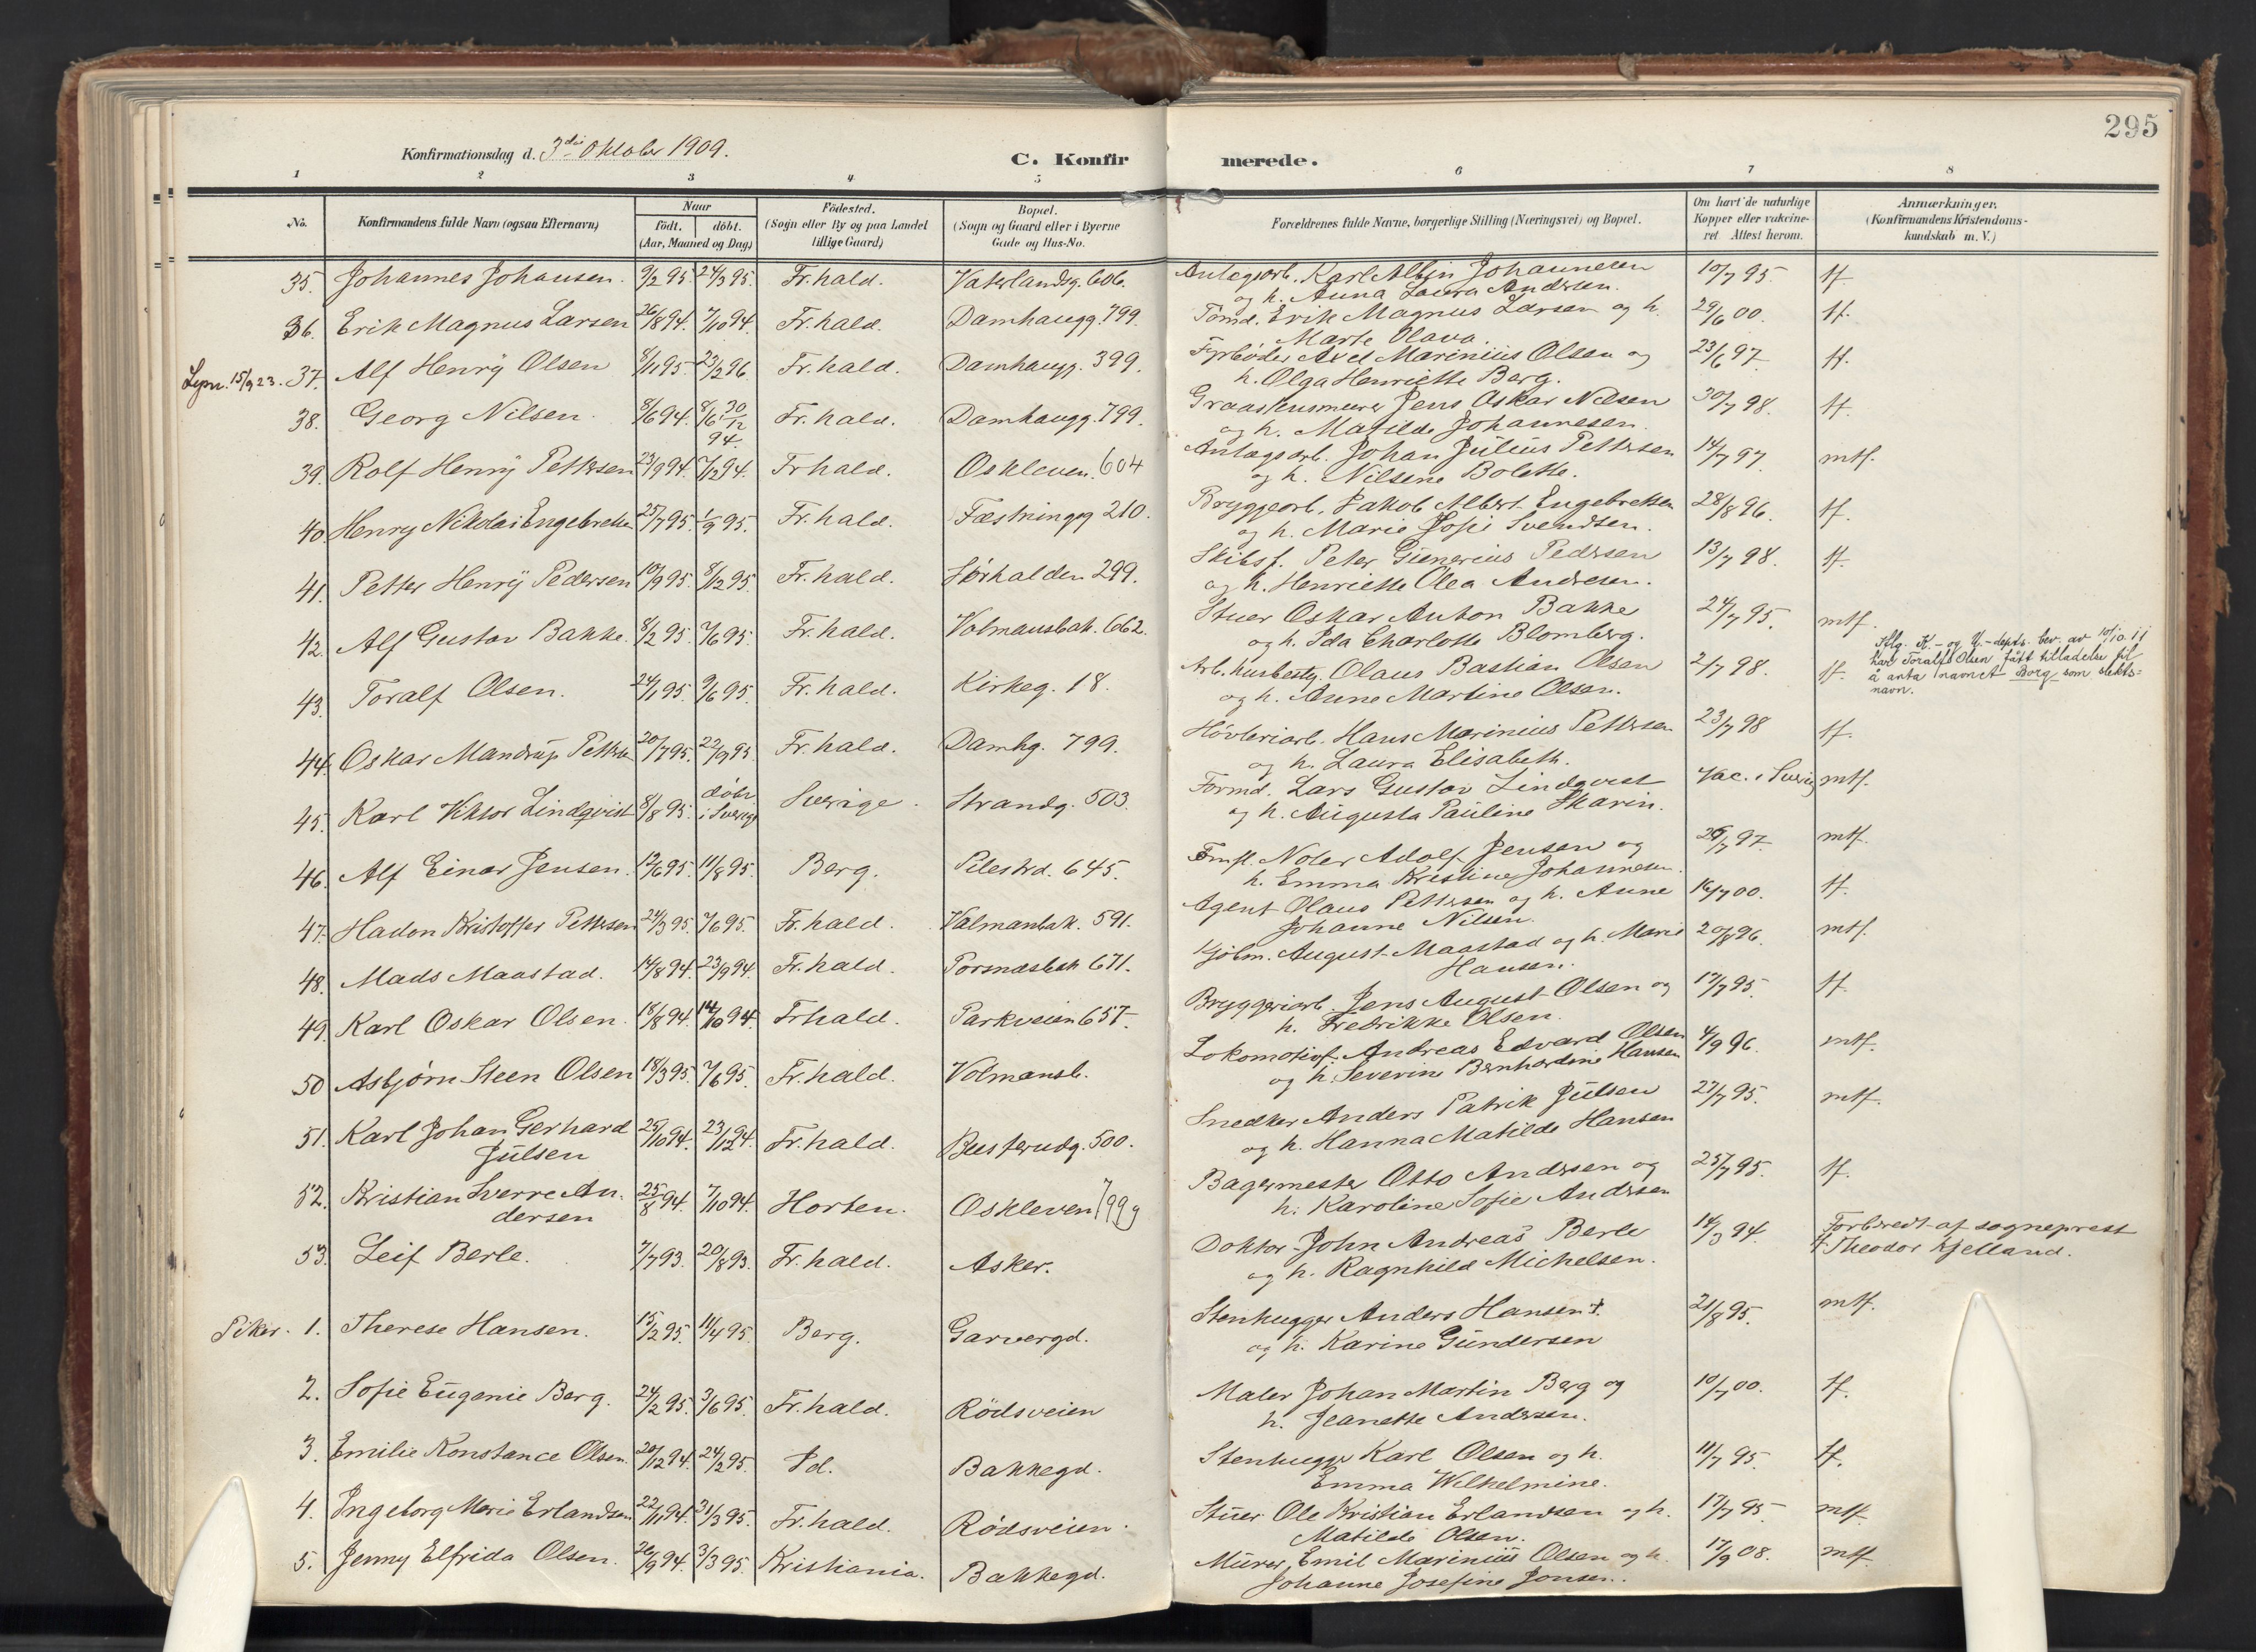 295
Konfirmationsdag d. 3die Oktober 1909. C. Konfirmerede.
1 2 3 4 5 6 7 8
No. Konfirmandens fulde Navn (ogsaa Efternavn) Naar født. døbt. (Aar, Maaned og Dag) Fødested. (Sogn eller By og paa Landet tillige Gaard) Bopæl. (Sogn og Gaard eller i Byerne Gade og Hus-No. Forældrenes fulde Navne, borgerlige Stilling (Næringsvei) og Bopæl. Om havt de naturlige Kopper eller vakcineret Attest herom. Anmærkninger. (Konfirmandens Kristendomskundskab m. V.)
35. Johannes Johansen. 9/2 95. 24/3 95. Fr.hald. Vaterlandsg. 606. Anlægsarb. Karl Albin Johannesen 10/7 95. tf.
og h. Anna Laura Andersen.
36. Erik Magnus Larsen 26/8 94. 7/10 94. Fr.hald. Damhaugg. 799. Tømd. Erik Magnus Larsen og h. 29/6 00. tf.
Marte Olava.
Lysn. 15/9 23. 37. Alf Henry Olsen 8/11 95. 23/2 96. Fr.hald. Damhaugg. 399. Fyrbøder Axel Marinius Olsen og 23/6 97. tf.
h. Olga Henriette Berg.
38. Georg Nilsen. 8/6 94. 8/6 30/12 94. Fr.hald. Damhaugg. 799. Graastensmurer Jens Oskar Nilsen 30/7 98. tf.
og h. Matilde Johannesen.
39. Rolf Henry Pettersen 23/9 94. 7/12 94. Fr hald. Oskleven. 604 Anlægsarb. Johan Julius Pettersen 14/7 97. mtf.
og h. Nilsine Bolette.
40. Henry Nikolai Engebretsen 25/7 95. 1/9 95. Fr.hald. Fæstningsg 210. Bryggeorb. Jakob Albert Engebretsen 28/8 96. tf.
og h. Marie Josefie Svendsen.
41. Petter Henry Pedersen 10/9 95. 8/12 95. Fr.hald. Sørhalden 299. Skibsf. Peter Gunerius Pedersen 13/7 98. tf.
og h. Henriette Olea Andresen.
42. Alf Gustav Bakke. 8/2 95. 7/6 95. Fr.hald. Volmansbak. 662. Stuer Oskar Anton Bakke 24/7 95. mtf.
og h. Ida Charlotte Blomberg.
43. Toralf Olsen. 24/1 95. 9/6 95. Fr.hald. Kirkeg. 18. Arb. husbesty. Olaus Bastian Olsen 2/7 98. tf.
og h. Anne Martine Olsen.
Iflg. K.- og U.-depts. bev. av 10/10 11
har Toralf Olsen fått tilladelse til
å anta navnet Borg som slekts-
navn.
44. Oskar Mandrup Pettersen 20/7 95. 22/9 95. Fr.hald. Damhg. 799. Høvleriarb. Hans Marinius Pettersen 23/7 98 tf.
og h. Laura Elisabeth.
45. Karl Viktor Lindqvist 8/8 95. døbt i Sverige Sverige. Strandg. 503. Formd. Lars Gustav Lindqvist Vac. i Sverig mtf.
og h. Augusta Pauline Skarin.
46. Alf Einar Jensen. 12/6 95. 11/8 95. Berg. Pilestrd. 645. Adolf Jensen og 97. mtf.
h. Emma Kristine Johannesen.
47. Hadon Kristoffer Pettersen 24/3 95. 7/6 95. Fr.hald. Valmanbak. 591. Agent Olaus Pettersen og h. Anne 16/7 00. tf.
Johanne Nilsen.
48. Mads Maastad. 14/8 94. 23/9 94. Fr.hald. Porsnæsbak 671. Kjølm. August Maastad og h. Marie 20/8 96. mtf.
Hansen.
49. Karl Oskar Olsen. 18/8 94. 14/10 94. Fr hald. Parkveien 657. Bryggeriarb. Jens August Olsen og 17/7 95. tf.
h. Fredrikke Olsen.
50 Asbjørn Steen Olsen 18/3 95. 7/6 95. Fr.hald. Volmansb. Lokomotivf. Andreas Edvard Olsen 4/9 96. mtf.
og h. Severine Bernhardine Hansen
51. Karl Johan Gerhard Julsen 25/10 94. 23/12 94. Fr.hald. Busterudg. 500. Snedker Anders Patrik Julsen 27/7 95. mtf.
og h. Hanna Matilde Hansen
52. Kristian Sverre Andersen 25/8 94. 7/10 94. Horten. Oskleven 799 g Bagermester Otto Andersen og 25/7 95. tf.
h. Karoline Sofie Andersen
53. Leif Berle. 7/7 93. 20/8 93. Fr.hald. Asker. Doktor John Andreas Berle 18/3 94. Forberedt af sogneprest
og h. Ragnhild Michelsen. tf Theodor Kjelland.
Piker. 1. Therese Hansen. 15/2 95. 11/4 95. Berg. Garvergd. Stenhugger Anders Hansen †. 21/8 95. mtf.
og h. Karine Gundersen
2. Sofie Eugenie Berg. 24/2 95. 3/6 95. Fr.hald. Rødsveien Maler Johan Martin Berg og 10/7 00. tf.
h. Jeanette Andersen.
3. Emilie Konstance Olsen. 20/12 94. 24/2 95. Id. Bakkegd. Stenhugger Karl Olsen og h. 11/7 95. tf.
Emma Wilhelmine.
4. Ingeborg Marie Erlandsen 22/11 94. 31/3 95. Fr.hald. Rødsveien. Stuer Ole Kristian Erlandsen og h. 17/7 95 mtf.
Matilde Olsen.
5. Jenny Elfrida Olsen. 26/9 94. 3/3 95. Kristiania. Bakkegd. Murer Emil Marinius Olsen og h. 17/9 08. mtf.
Johanne Josefine Jonsen.